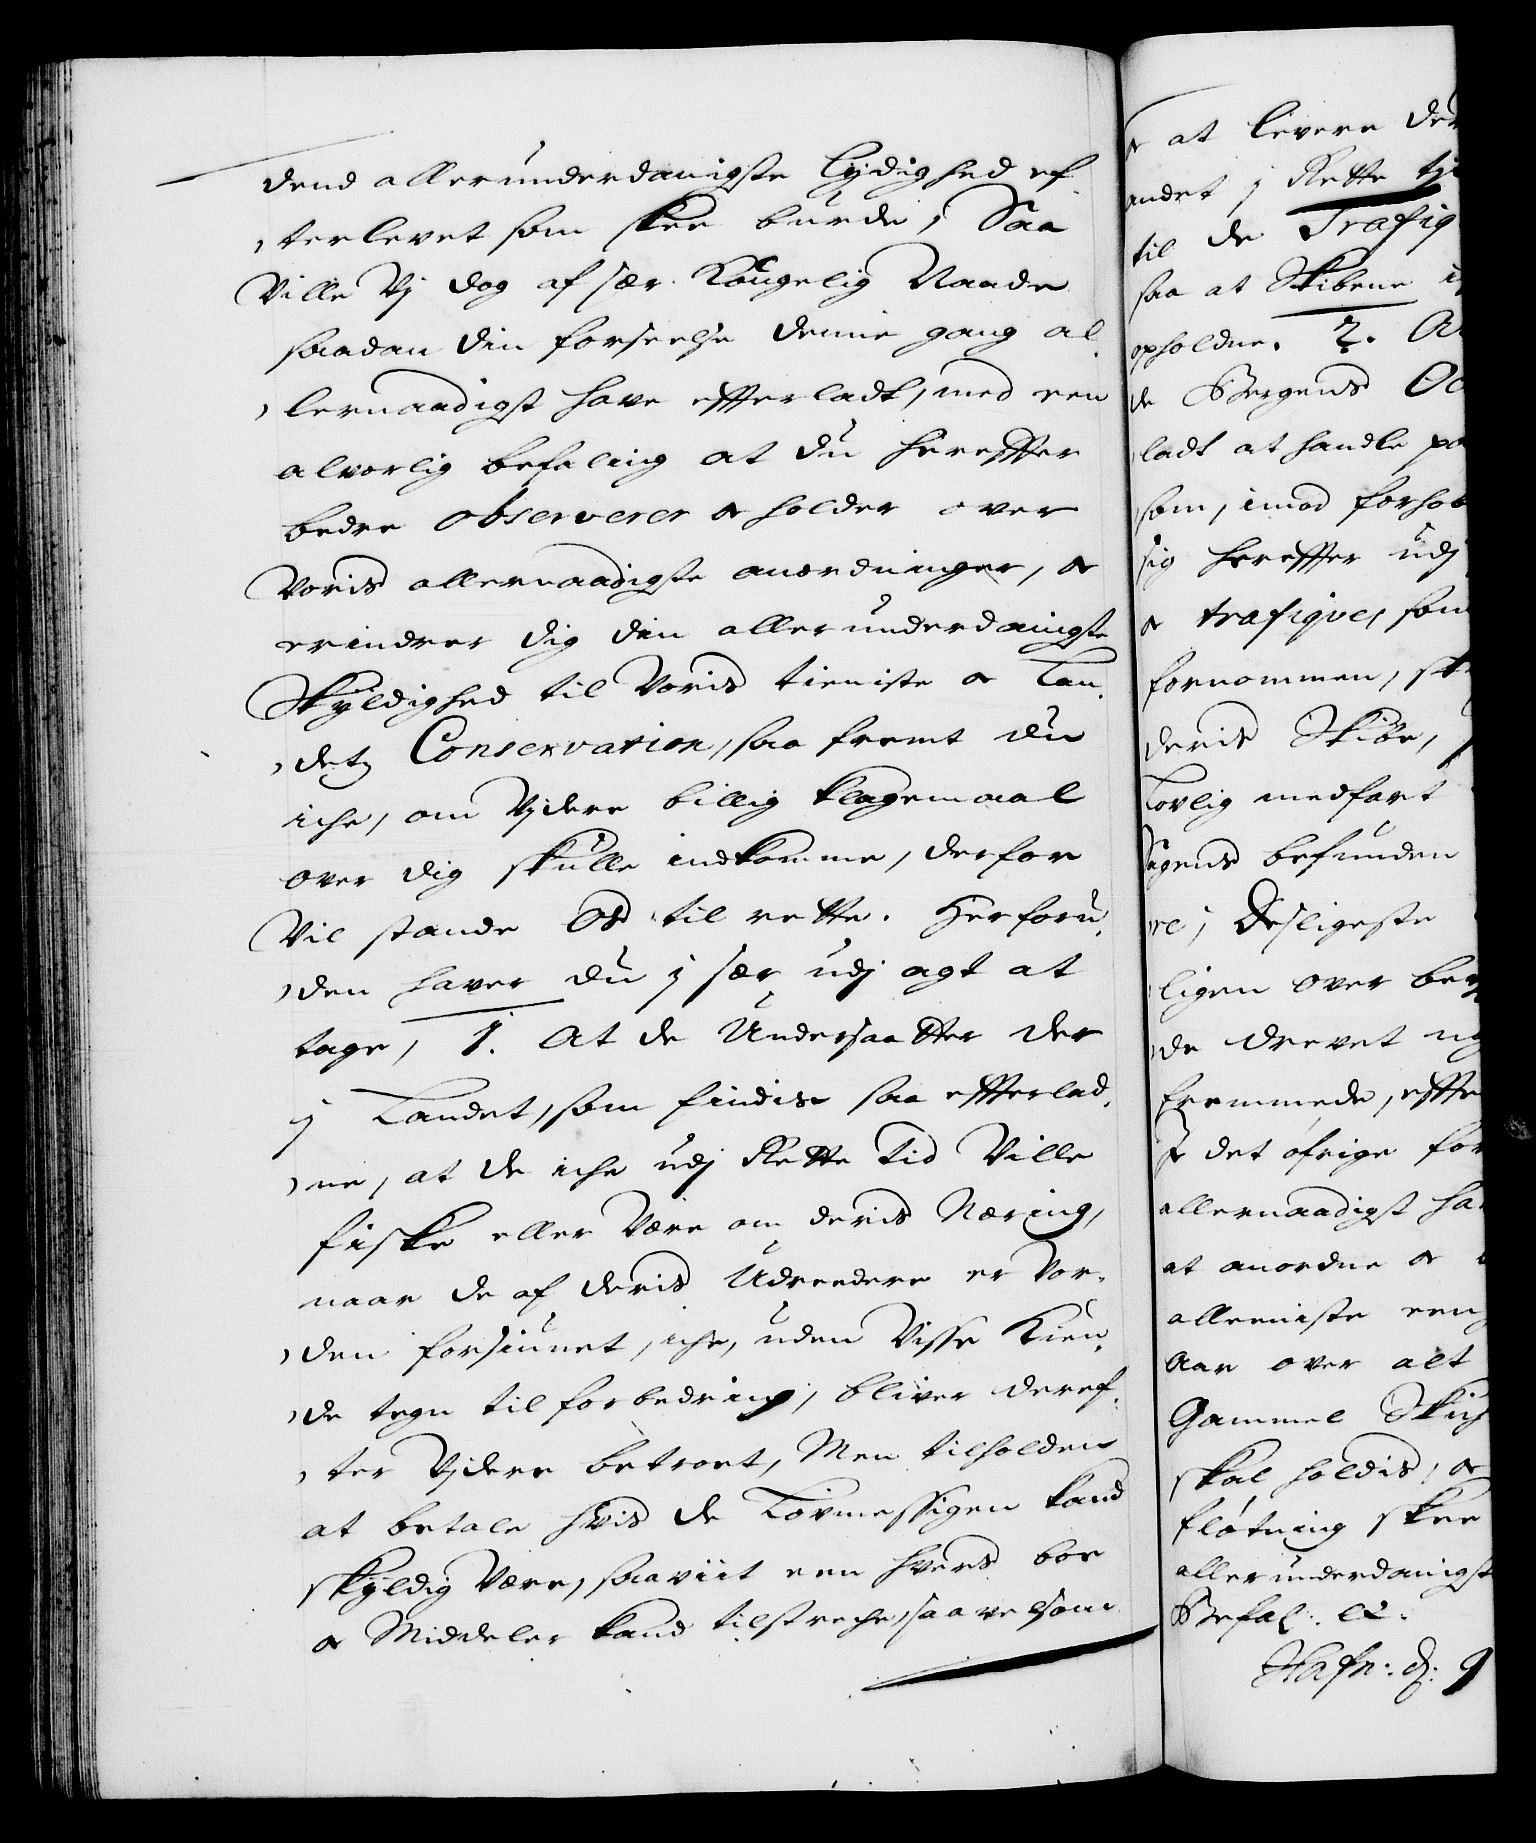 dend allerunderdanigste lydighed ef,
,terlevet som skee burde, Saa
Ville Vj dog af sær Kongelig Naade
saadan din forseelse denne gang al,
,lernaadigst have efterladt, med een
alvorlig befaling at du herefter
bedre observerer og holder over
Voris allernaadigste anordninger, og
erindrer dig din allerunderdanigste
Skyldighed til Voris tieniste og Lan,
,dets Conservation, saa fremt du
iche, om Vjdere billig klagemaal
over dig skulle indkomme, derfor
Vil stande Os til rette. Herforu,
,den haver du j sær udj agt at
tage, 1. At de Undersaatter der
j Landet, som findis saa efterlad,
,ne, at de iche udj Rette tid Ville
fiske eller Være om deris Næring,
naar de af deris Udreedere er Vor,
,den forsiunet, iche, uden Visse Kien,
,de tegn til forbedring, bliver deref,
,ter Vjdere betroet, Men tilholden
at betale hvis de Lovmessigen kand
skyldig Være, saaviit een hvers boe
og Middeler kand tilstreche, saavelsom
og at levere der
andet j Rette tji
til de Trafiq
saa at Skibene
opholdne. 2. A
de Bergens Oc
ladt at handle paa
som, imod forhob
sig herefter udj
og trafiqve, som
fornommen, sk
deris Skibe,
Lovlig medfart
Sagens befunden
Desligeste
ligen over ber
de drevet
fremmede, efte
og det øfrige for
allernaadigst ha
at anordne og
alleeniste een
Aar over alt
Gammel Skich
skal holdis, og
fløtning skee
allerunderdanigst
Befal. etc.
Hafn: d: 9